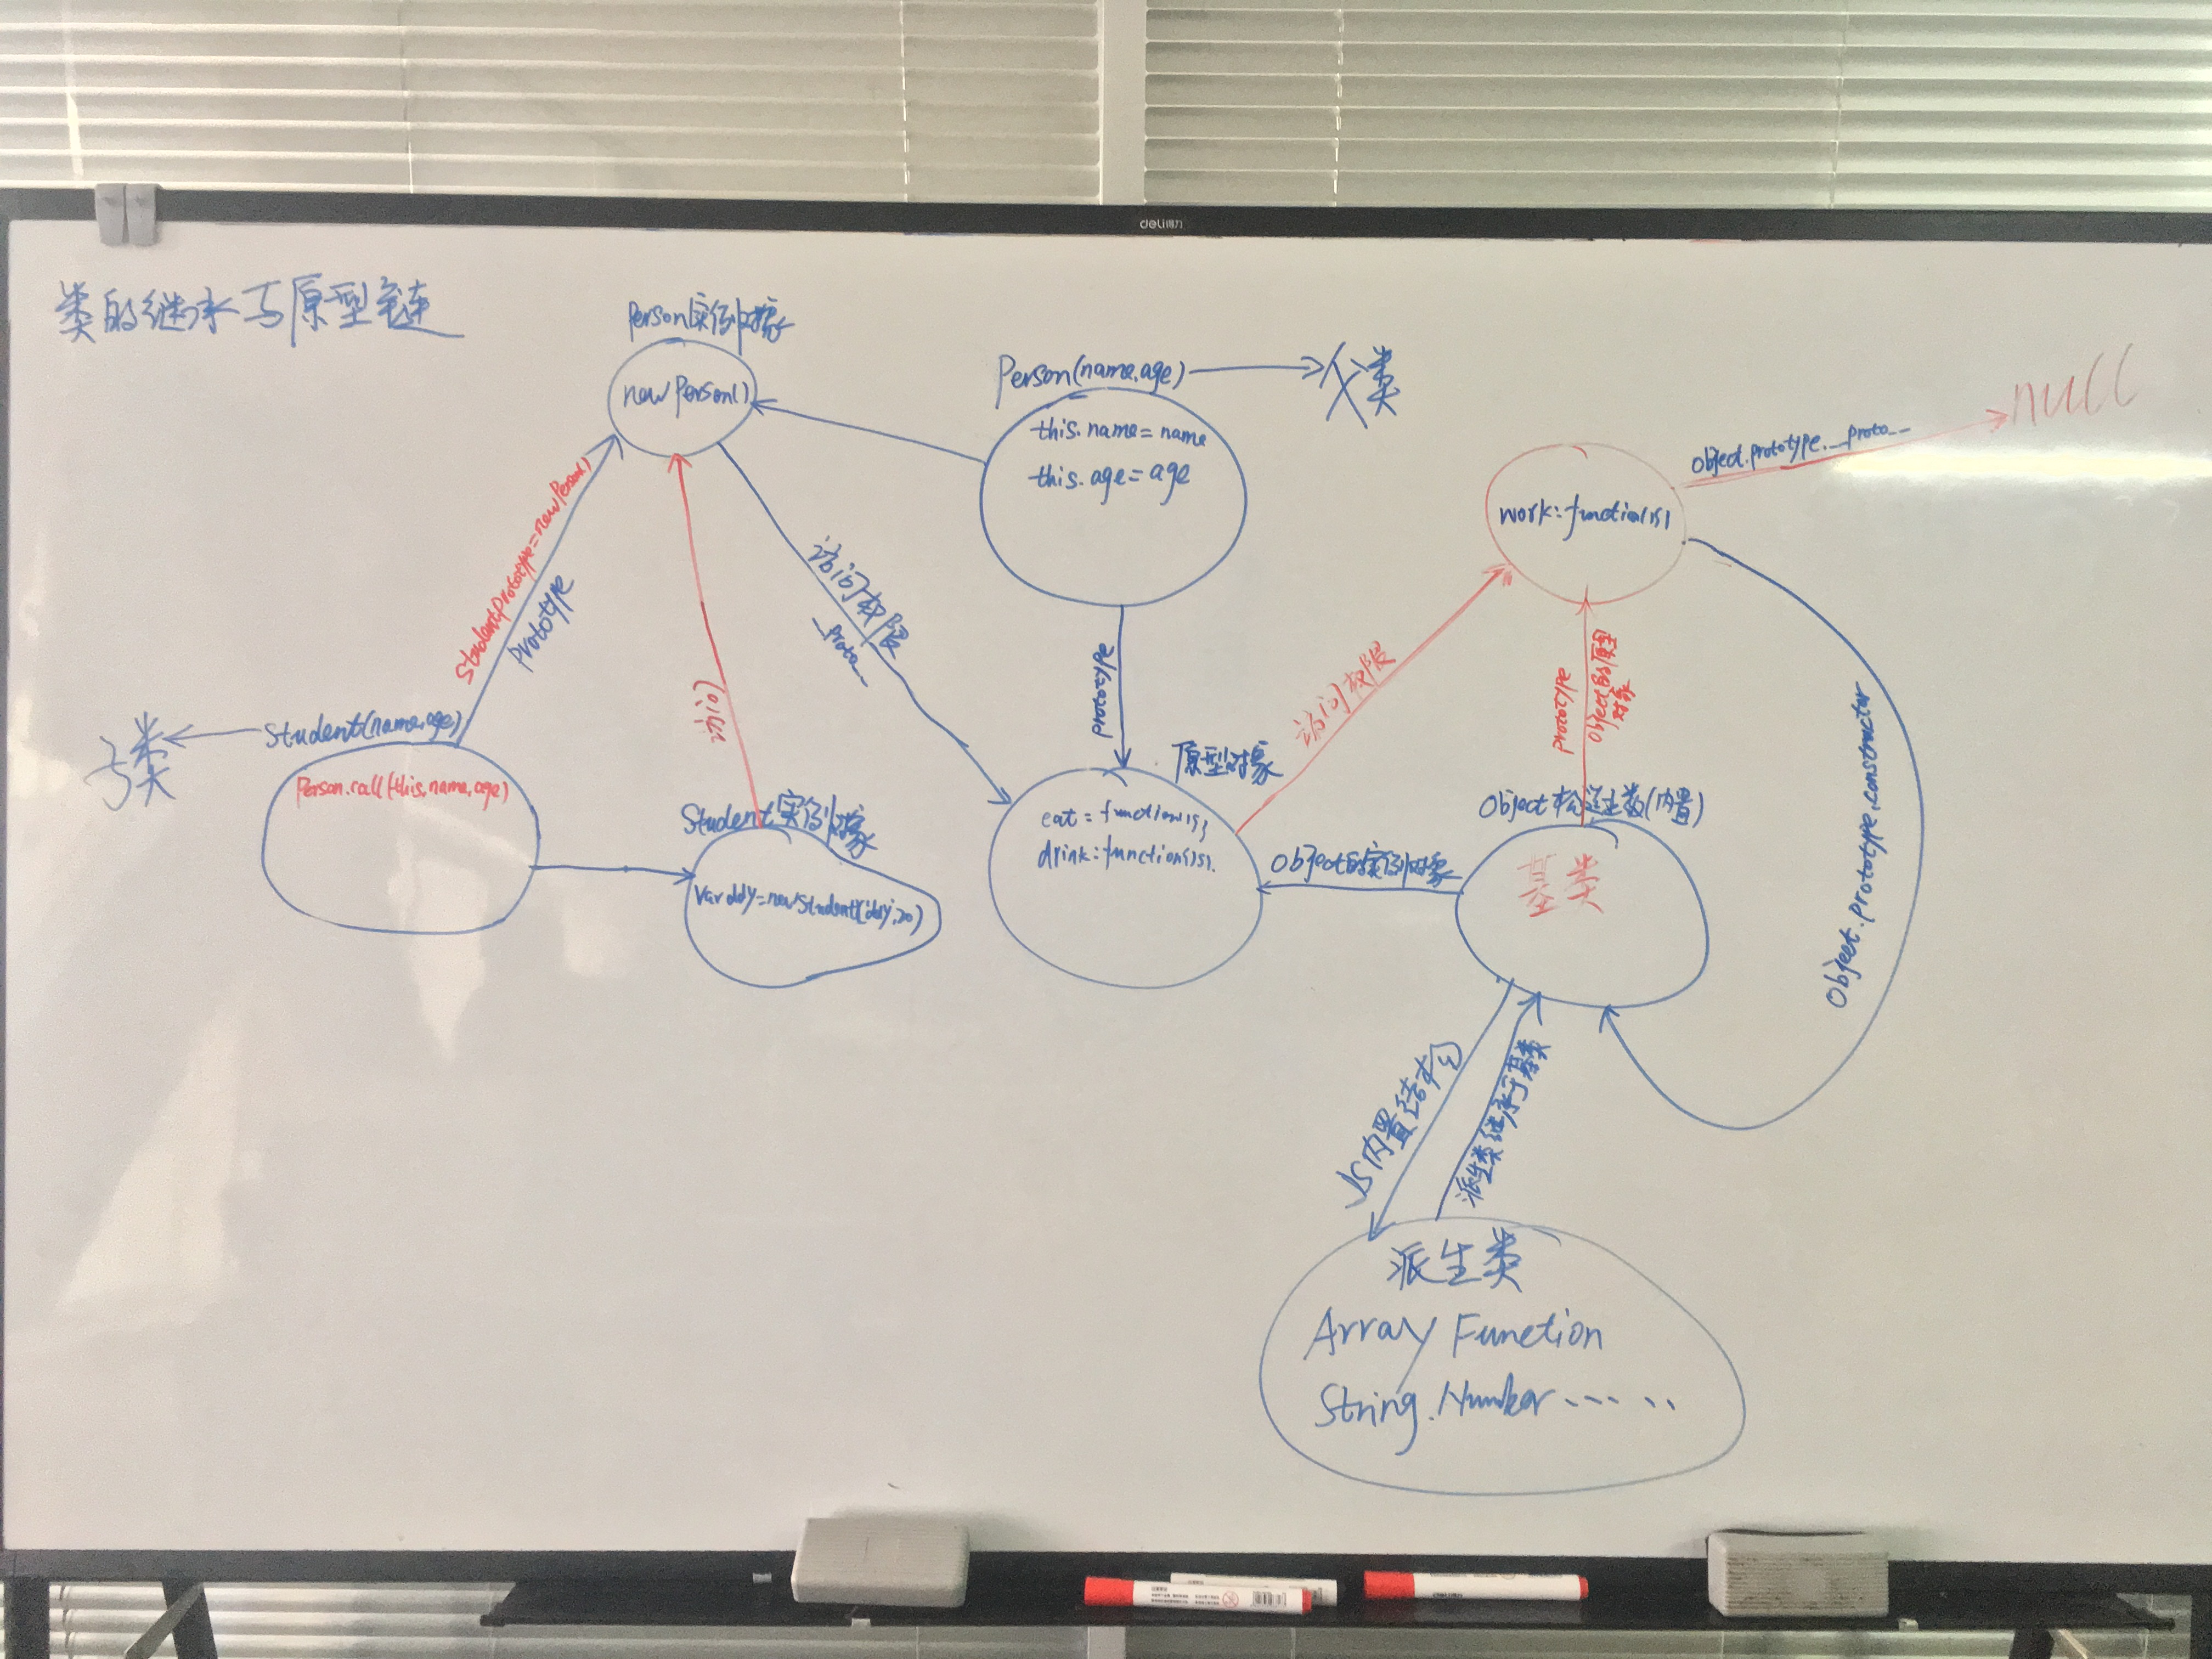 deli得力
类的继承与原型链
Person实例对象
new Person()
Person(name,age)
父类
this.name=name
this.age=age
null
Object.prototype.__proto__
work:function(){}
Student.prototype=new Person()
prototype
访问权限
__proto__
访问
prototype
子类
Student(name,age)
Person.call(this,name,age)
Student实例对象
var ddy=new Student('ddy',20)
原型对象
eat:function(){},
drink:function(){}.
访问权限
prototype
Object的原型
对象
Object构造函数(内置)
基类
Object的实例对象
Object.prototype.constructor
JS内置结构
派生类继承于基类
派生类
Array Function
String.Number......